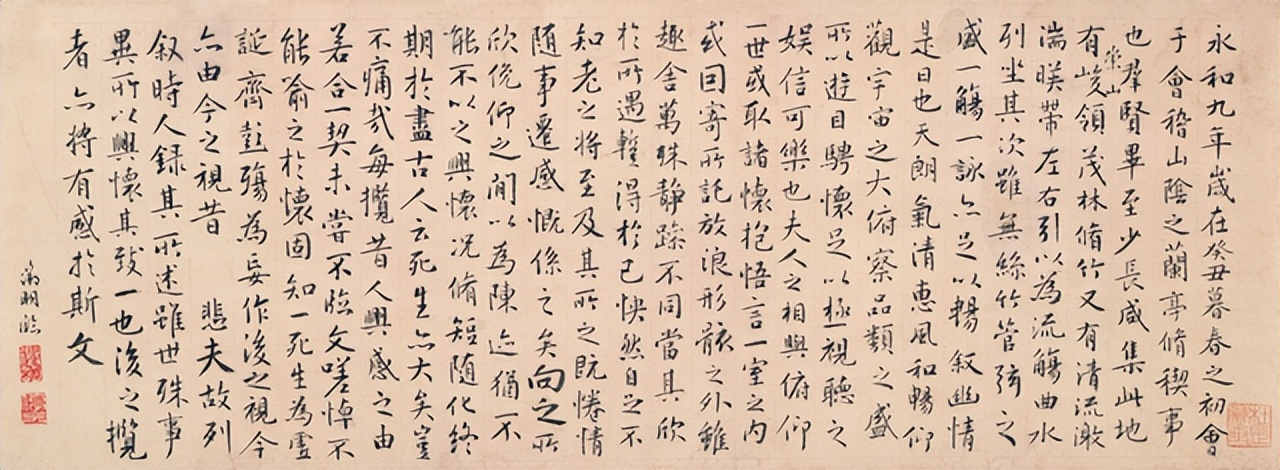 永和九年歲在癸丑暮春之初會
于會稽山陰之蘭亭脩稧事
也羣賢畢至少長咸集此地
有崇山峻領茂林脩竹又有清流激
湍暎帶左右引以為流觴曲水
列坐其次雖無絲竹管弦之
盛一觴一詠亦足以暢叙幽情
是日也天朗氣清惠風和暢仰
觀宇宙之大俯察品類之盛
所以遊目騁懷足以極視聽之
娛信可樂也夫人之相與俯仰
一世或取諸懷抱悟言一室之內
或因寄所託放浪形骸之外雖
趣舍萬殊靜躁不同當其欣
於所遇蹔得於己快然自足不
知老之將至及其所之既惓情
随事遷感慨係之矣向之所
欣俛仰之閒以為陳迹猶不
能不以之興懷況脩短隨化終
期於盡古人云死生亦大矣豈
不痛哉每攬昔人興感之由
若合一契未嘗不臨文嗟悼不
能喻之於懷固知一死生為虛
誕齊彭殤為妄作後之視今
亦由今之視昔 悲夫故列
叙時人錄其所述雖世殊事
異所以興懷其致一也後之攬
者亦將有感於斯文
徵明臨